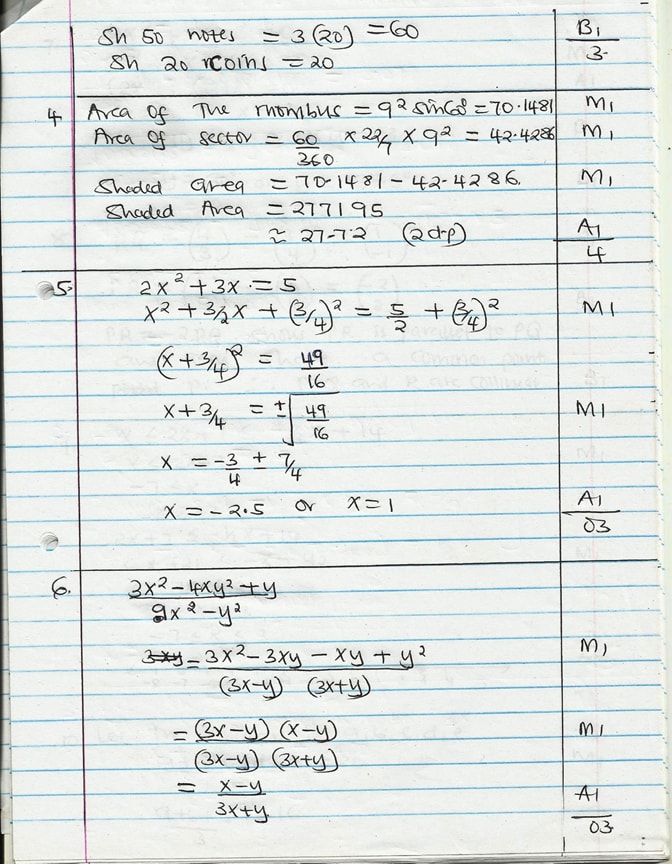 Sh 50 notes = 3(20) = 60 B1
Sh 20 coins = 20 3
4 Area Of The rhombus = 9² sin60° = 70.1481 M1
Area Of sector = 60/360 × 22/7 × 9² = 42.4286 M1
Shaded area = 70.1481 - 42.4286. M1
Shaded Area = 277195
≈ 27.72 (2d.p) A1
4
5. 2x² + 3x = 5
x² + 3/2x + (3/4)² = 5/2 + (3/4)² M1
(x + 3/4)² = 49/16
x + 3/4 = ±√49/16 M1
x = -3/4 ± 7/4
x = -2.5 or x = 1 A1
03
6. 3x² - 4xy² + y
9x² - y²
3xy = 3x² - 3xy - xy + y² M1
(3x-y) (3x+y)
= (3x-y) (x-y) M1
(3x-y) (3x+y)
= x-y A1
3x+y 03